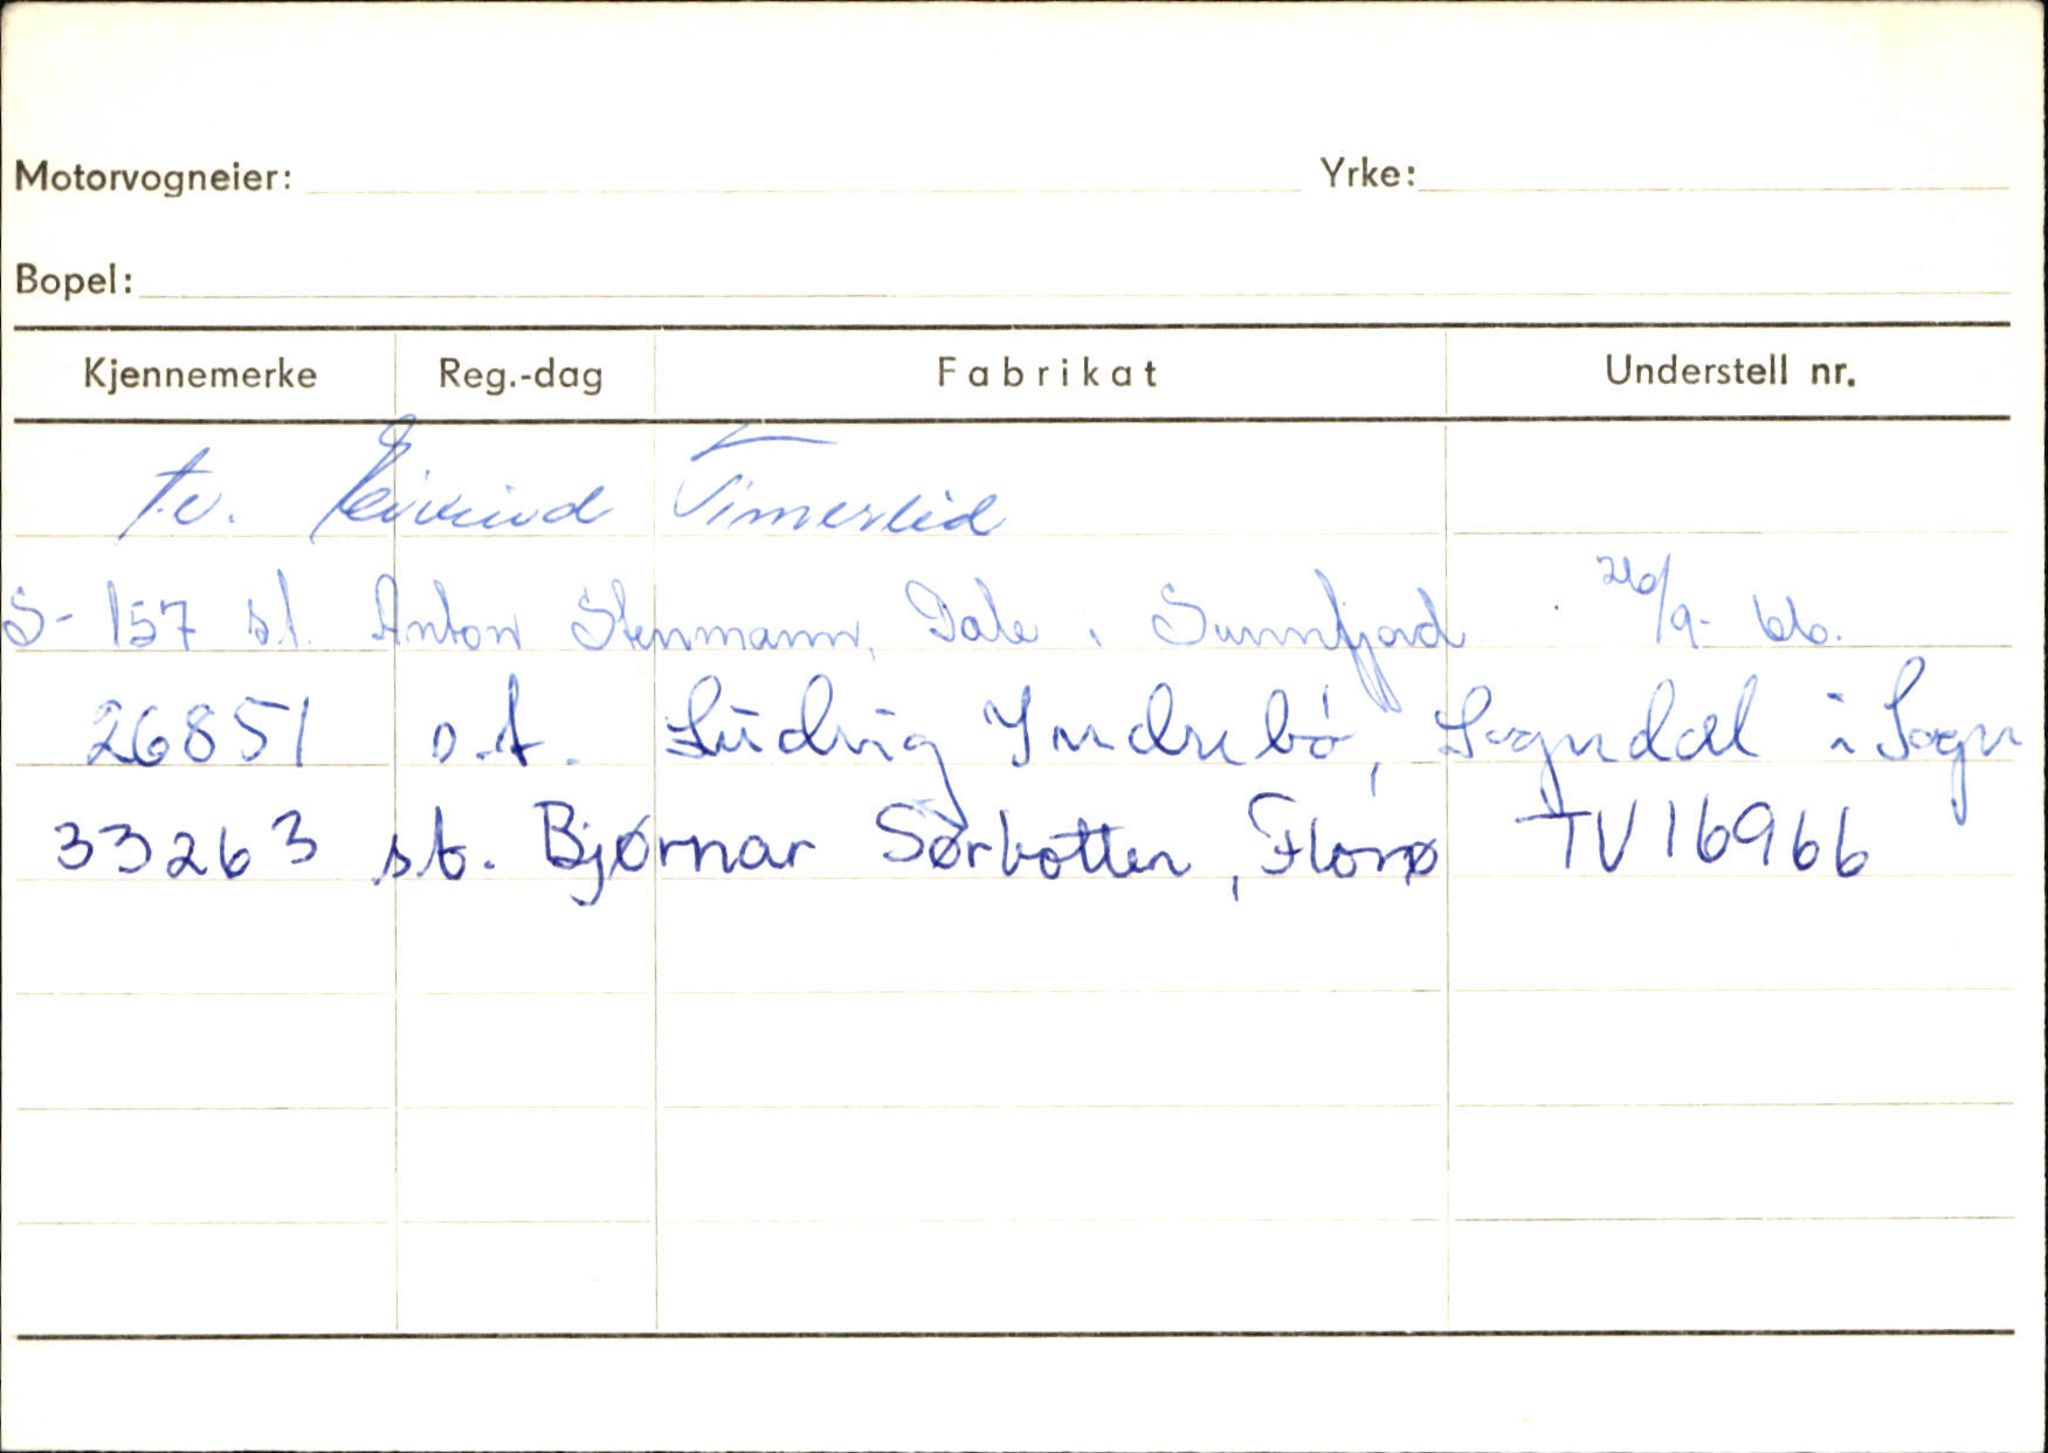 Motorvogneier: Yrke:
Bopel:
Kjennemerke Reg.-dag Fabrikat Understell nr.
tv. Eivind Timerlid
S-157 s.t. Anton Stenmann, Dale i Sunnfjord 26/9-66.
26851 s.t. Ludvig Indrebó, Sogndal i Sogn
33263 s.t. Bjørnar Sørbotten, Florø TV16966